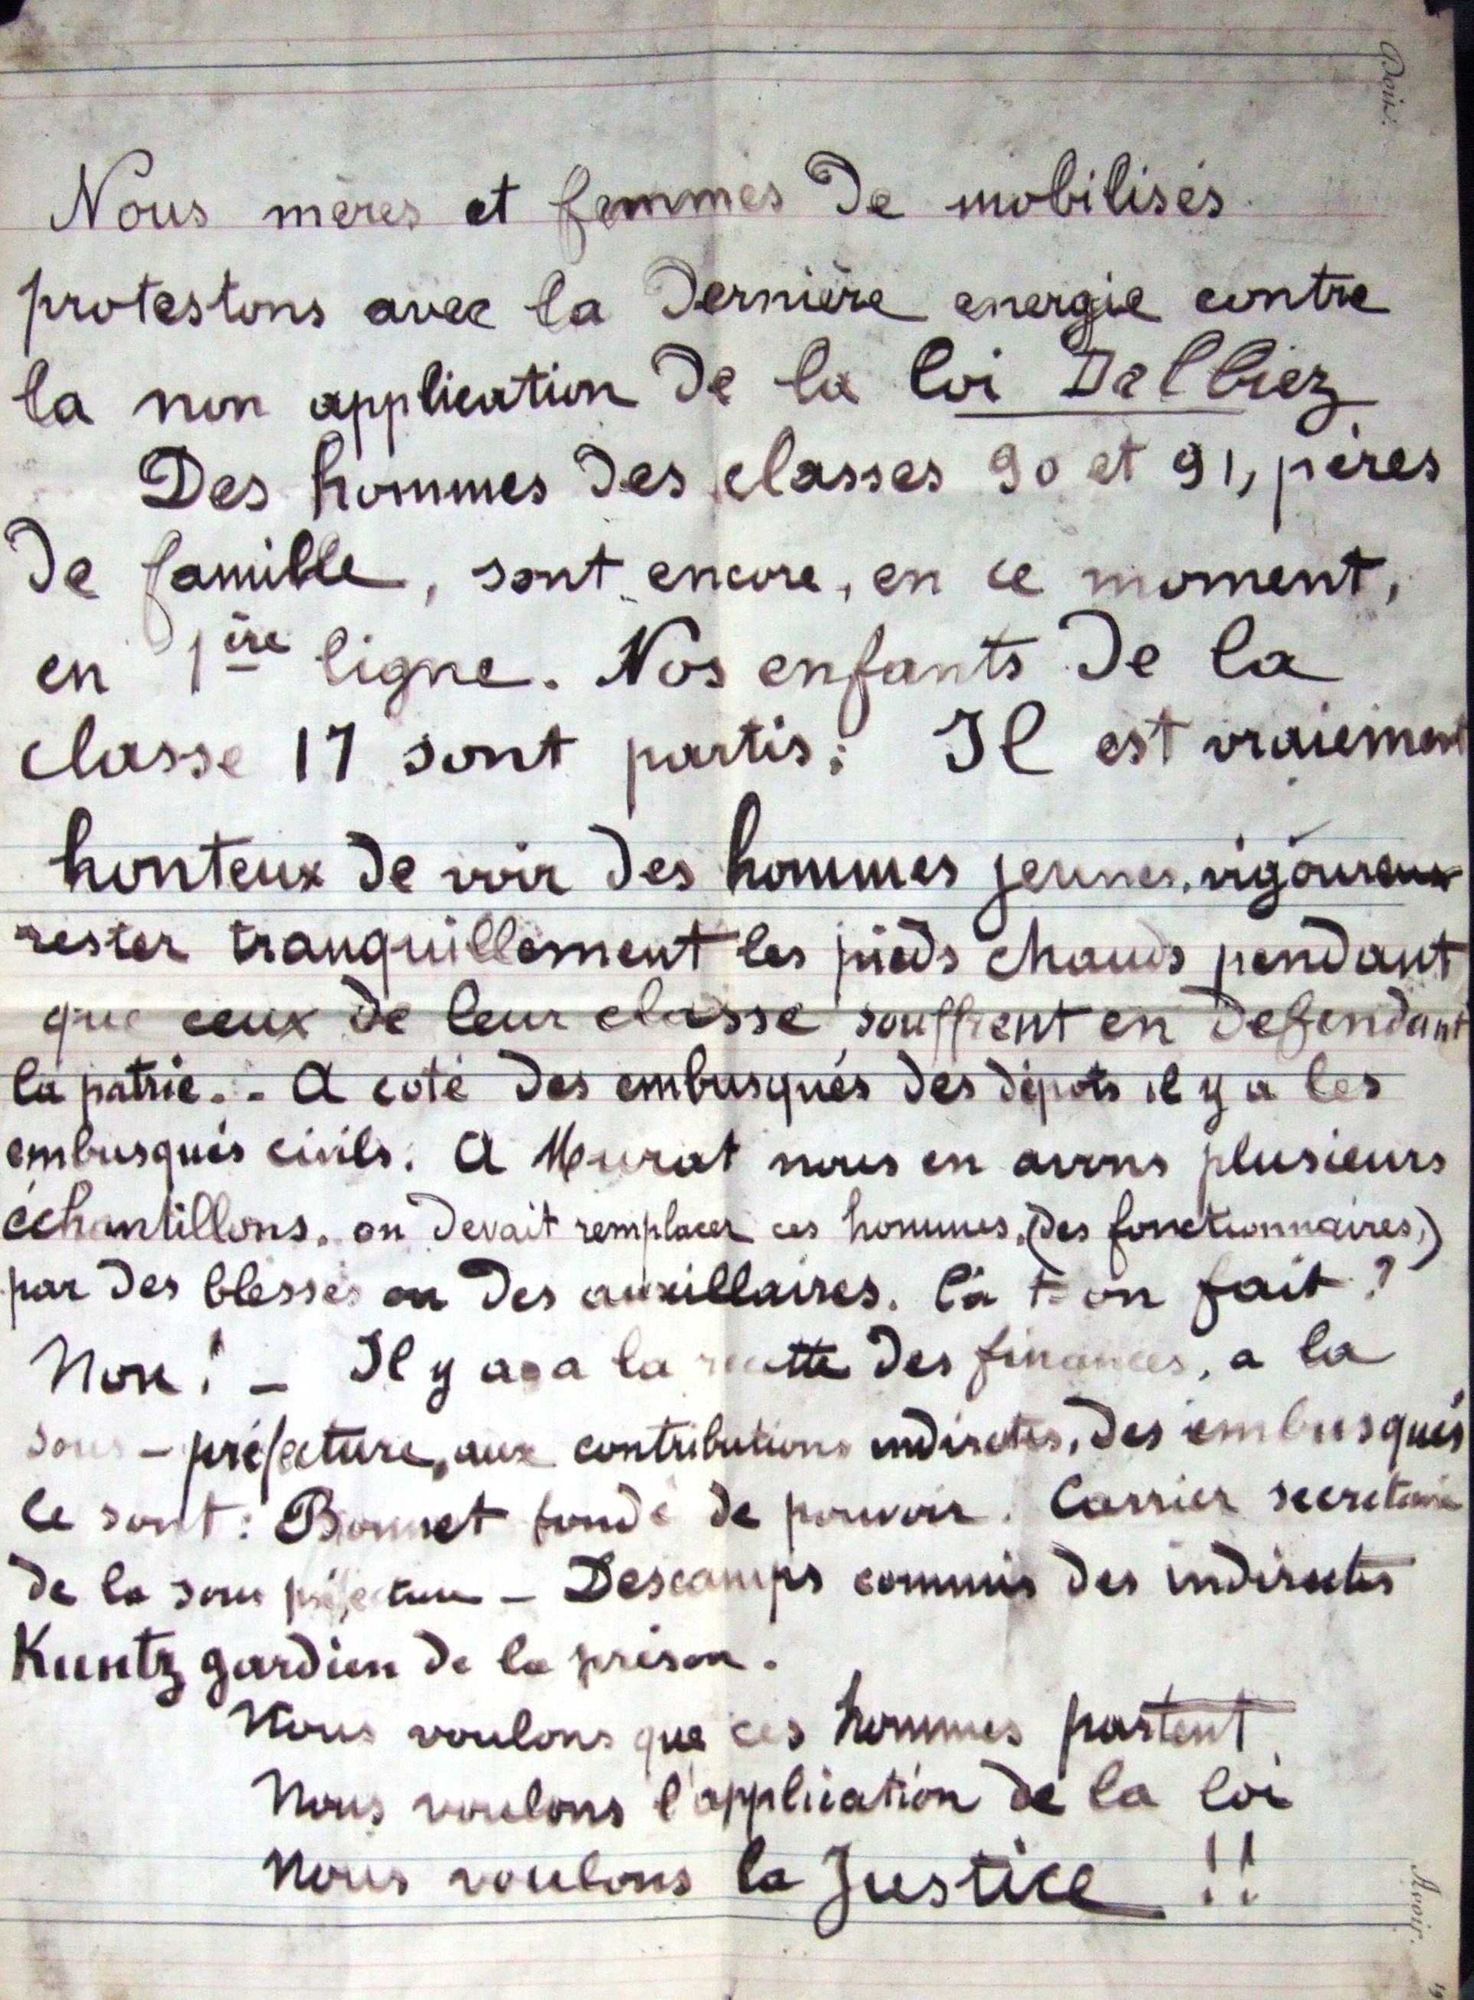 Doit.
Nous mères et femmes de mobilisés
protestons avec la dernière energie contre
la non application de la loi Dalbiez
Des hommes des classes 90 et 91, pères
de famille, sont encore, en ce moment,
en 1ère ligne. Nos enfants de la
classe 17 sont partis; Il est vraiement
honteux de voir des hommes jeunes, vigoureux
rester tranquillement les pieds chauds pendant
que ceux de leur classe souffrent en defendant
la patrie. - A coté des embusqués des dépots il y a les
embusqués civils. A Murat nous en avons plusieurs
échantillons. on devait remplacer ces hommes, (des fonctionnaires,)
par des blessés ou des auxillaires. l'a t-on fait ?
Non ! - Il y a a la recette des finances, a la
sous-préfecture, aux contributions indirectes, des embusqués
ce sont : Bonnet fondé de pouvoir. Carrier secretaire
de la sous préfecture - Descamps commis des indirectes
Kuntz gardien de la prison.
Nous voulons que ces hommes partent
Nous voulons l'application de la loi
Nous voulons la Justice !!
Avoir.
19